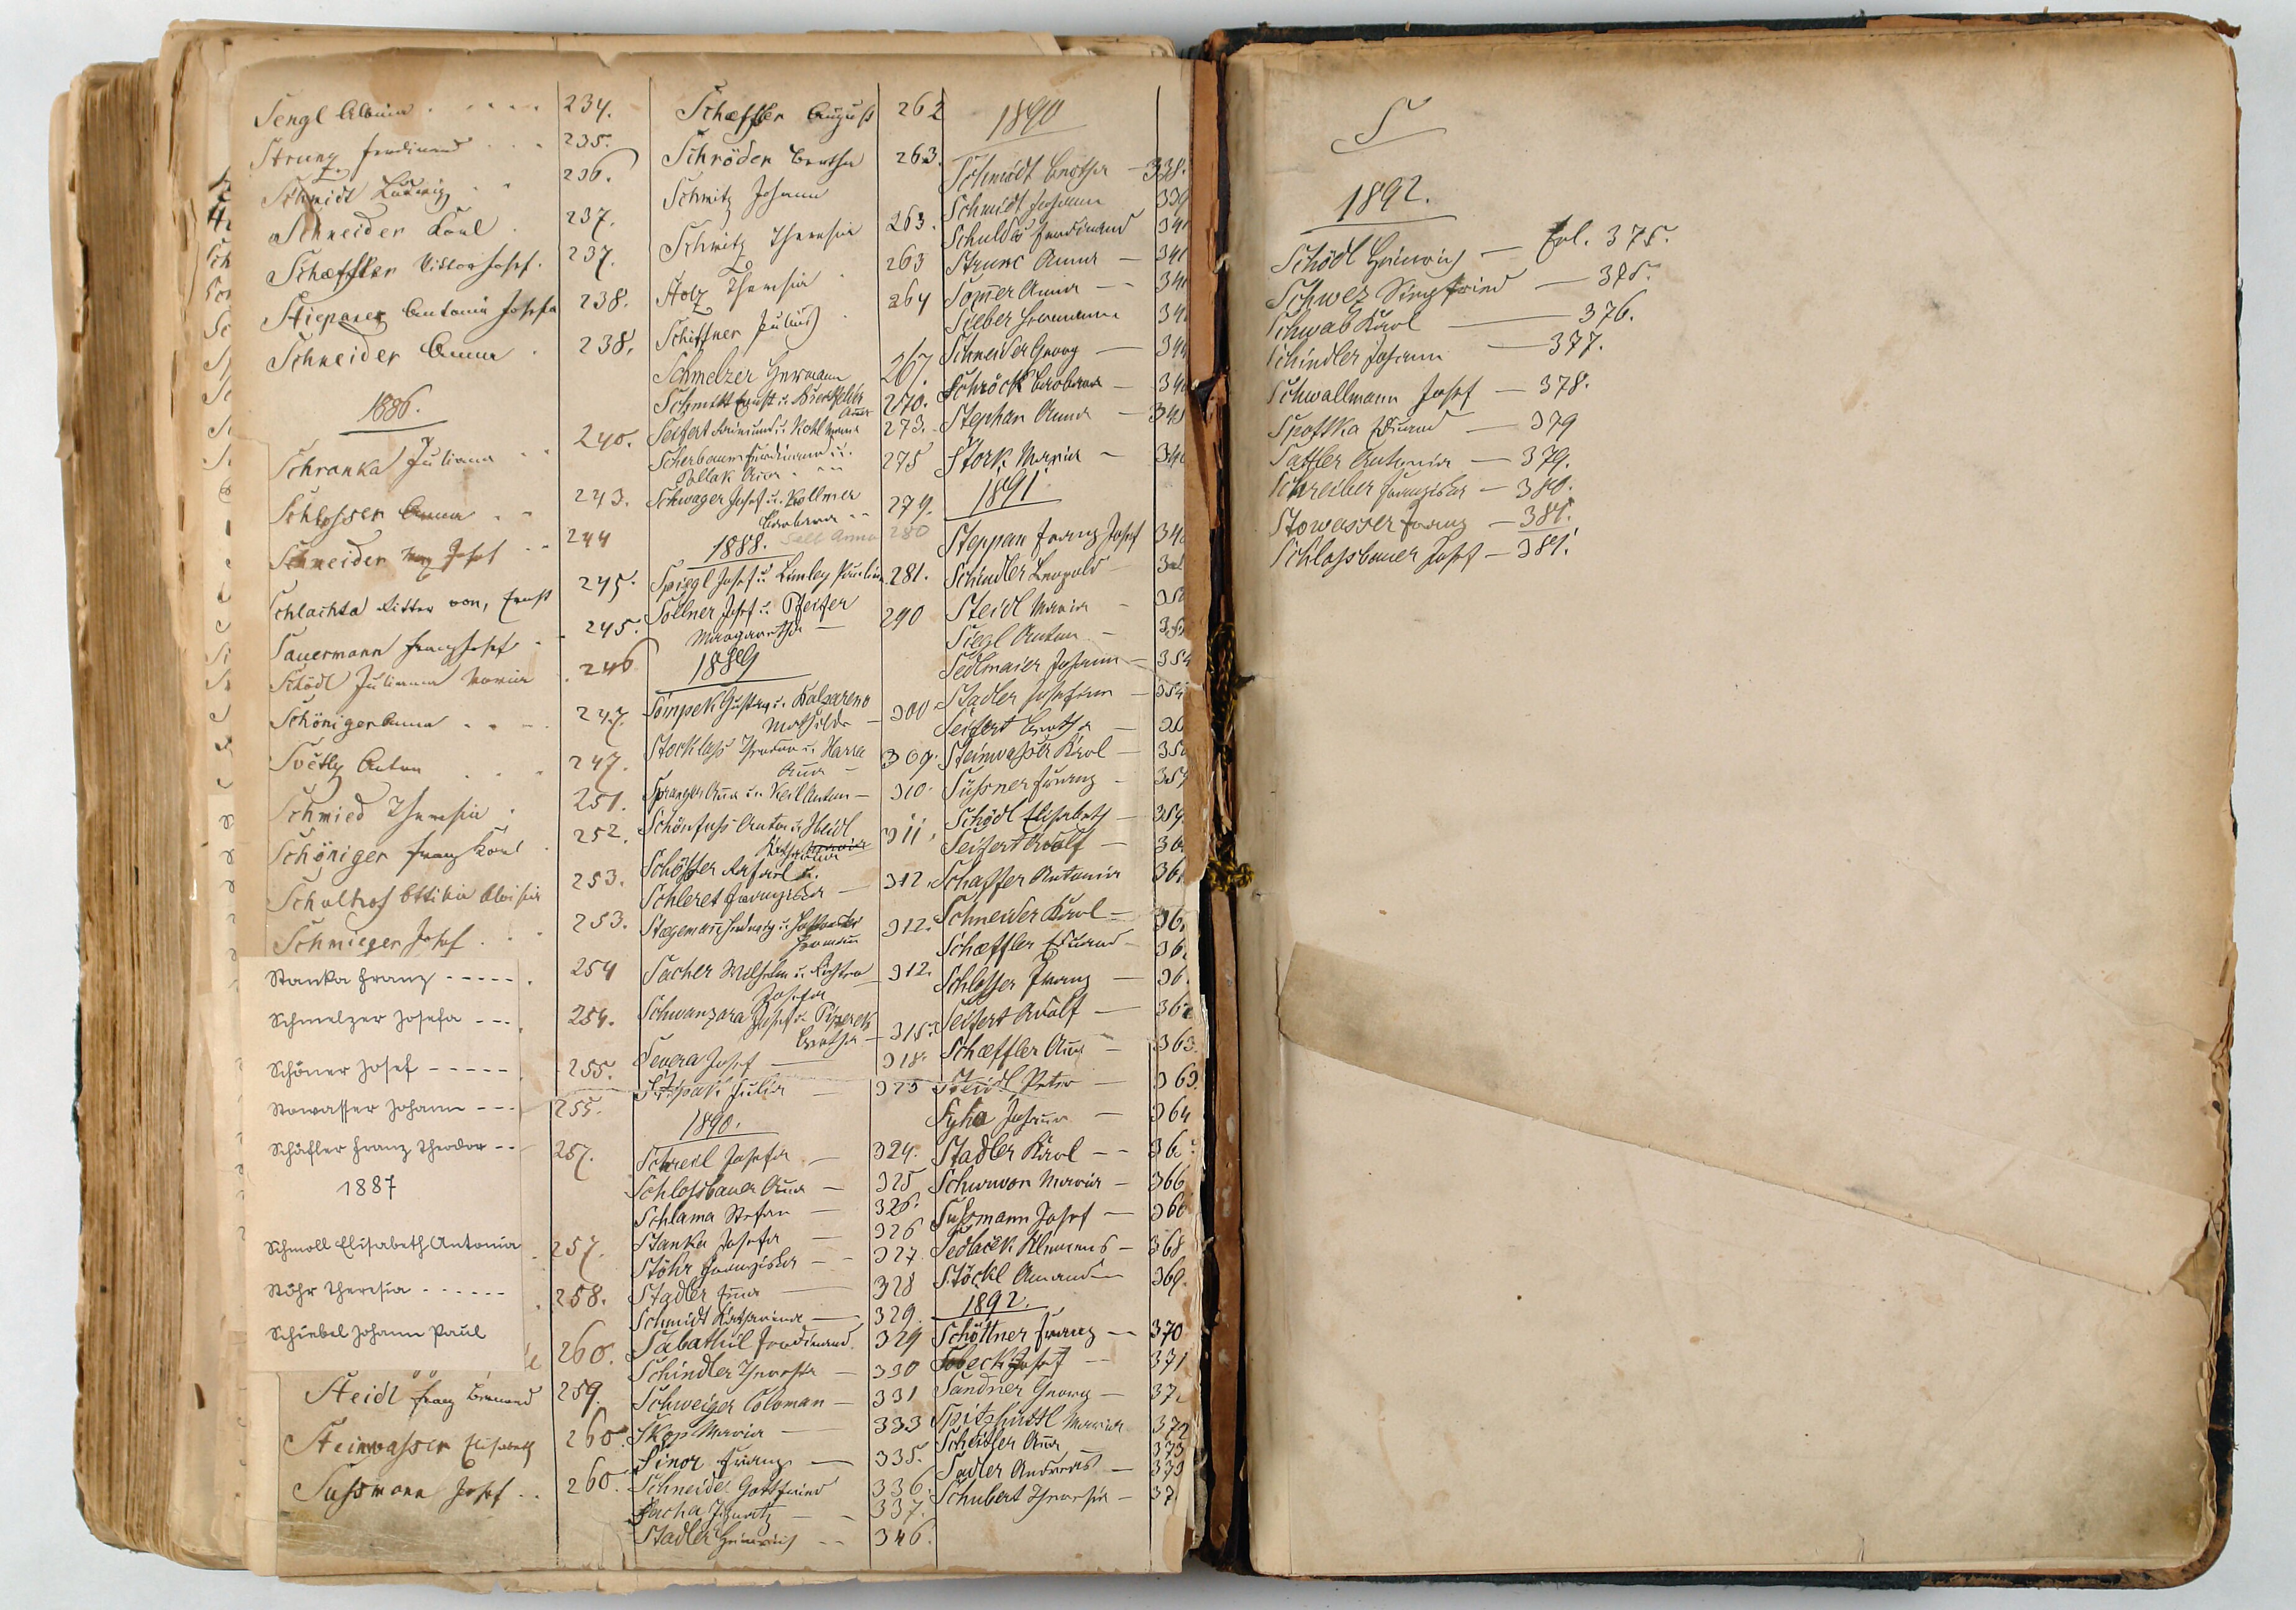 Sengl Albina 234.
Strunz Ferdinand 235.
Schmidt Ludwig 236.
Schneider Karl 237.
Schæffler Viktor Josef. 237.
Antonia Josefa 238.
Schneider Anna 238.
1886.
Schranka Juliana 240.
Schlosser Anna 243.
Schneider Josef 244
Schlachta Ritter von, Ernst 245.
Sauermann Franz Josef 245.
Schödl Juliana Maria 246
Schöniger Anna 247.
Světly Anton 247.
Schmied Theresia 251.
Schöniger Franz Karl 252.
Schulhof Ottilia Aloisia 253.
Schmieger Josef 253.
Stanka Franz ----- 254
Schmelzer Josefa --- 254.
Schöner Josef ----- 255.
Stowasser Johann --- 255.
Schäfler Franz Theodor -- 257.
1887
Schmoll Elisabeth Antonia 257.
Stöhr Theresia ------ 258.
Schiebel Johann Paul 260.
Steidl Franz 259.
Steinwasser Elisabeth 260.
Sussmann Josef 260.
Schæffler August 262
Schröder Bertha 263.
Schmitz Johann
Schmitz Theresia 263.
Stolz Theresia 263
Schiffner Julius 264
Schmelzer Hermann 267.
Schmidt Ernst u. 270.
Anna
Seifert u. Kohl 273.
Scherbaum Ferdinand u.
Pollak Anna 275
Schwager Josef u. Kollmer
Barbara 279.
1888. Sell Anna 280
Spiegl Josef u. 281.
Söllner Josef u. Pfeifer
Margaretha 290
1889
Gustav u.
Mathilde 300
Stocklass u.
Anna 309.
Spranger Anna u. Keil Anton 310.
Schönfuss Anton u. Heidl 311.
Schösser u.
Schleret Franziska 312.
Stegemann u.
Hermann 312.
Sacher Wilhelm u. Richter 312.
Josefa
Schwanzara Josef u.
Bertha
Severa Josef 318.
Julia 323
1890.
Schreil Josefa 324.
Schlossbauer Anna 325
Schlama Stefan 326.
Stanka Josefa 326
Stöhr Franziska 327.
Stadler Anna 328
Schmidt Katharina 329.
Sabathil Ferdinand 329
Schindler Theresia 330
Schweiger Coloman 331
Skop Maria 333
Sinor Franz 335.
Schneider Gottfried 336.
Sacha Ignatz 337.
Stadler Heinrich 346.
1890
Schmidt Bertha 338.
Schmidt Johann 339
Schuldes Ferdinand
Strunz Anna
Sommer Anna
Sieber Hermann
Schneider Georg
Schröck Barbara
Stephan Anna
Stork Maria
1891
Steppan Franz Josef
Schindler Leopold
Steidl Maria
Siegl Anton
Sedlmaier Johann 354
Stadler Josefine
Seifert Bertha
Steinwasser Karl
Süssner Franz
Schödl Elisabeth 359.
Seifert Adolf
Schaffer Antonia
Schneider Karl
Schæffler Eduard
Schlosser Franz
Seifert Adolf
Schæffler Anna 363.
Steidl Peter 363.
Syha Johann 364
Stadler Karl
Maria 366
Sussmann Josef 366
Sedlaček Klemens 368
Stöckl Amand 369.
1892.
Schöttner Franz 370
Sobeck Josef 371
Sandner Georg
Spitzhüttl Maria 372
Schedler Anna 373
Sadler Andreas 373
Schubert Theresia
S
1892.
Schödl Heinrich — Fol. 375.
Schwez Siegfried — 375.
Schwab Karl — 376.
Schindler Johann — 377.
Schwallmann Josef — 378.
Spottka Eduard — 379
Sattler Antonia — 379.
Schreiber Franziska — 380.
Stowasser Franz — 381.
Schlossbauer Josef — 381.